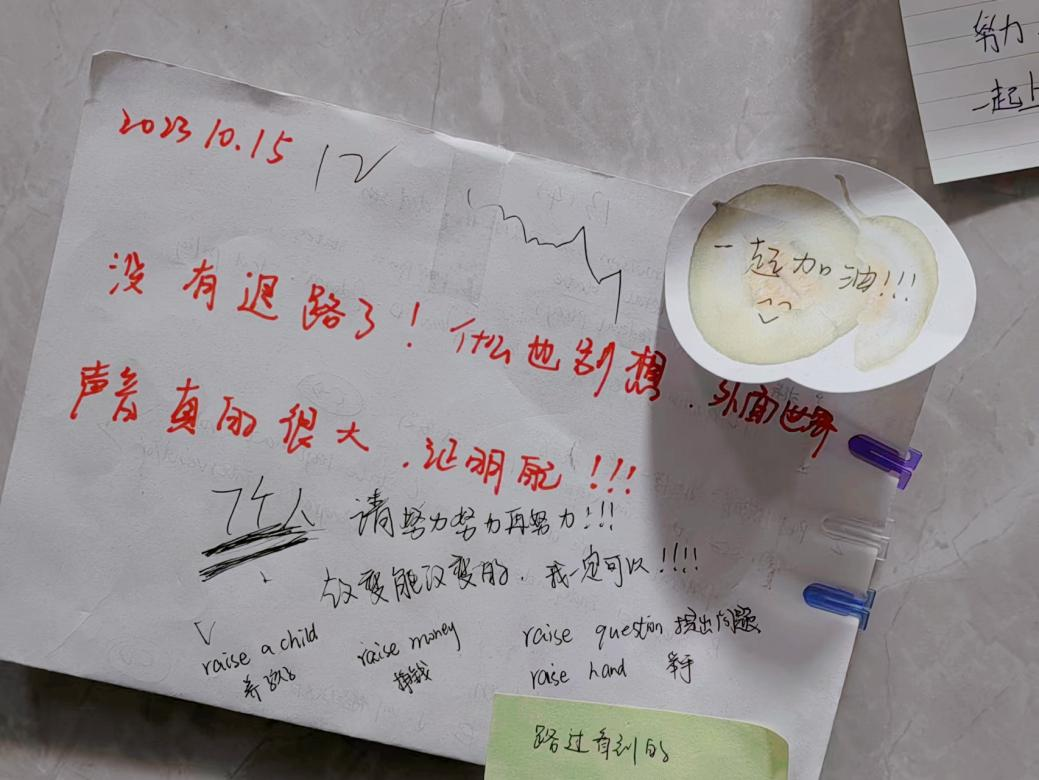 努力
一起
2023 10.15
12
一起加油!!!
没有退路了！什么也别想．外面世界
声音真的很大．证明能!!!
7个人
请努力努力再努力!!!
改变能改变的．我一定可以!!!!
raise a child
养孩子
raise money
挣钱
raise question 提出问题
raise hand 举手
路过看到的